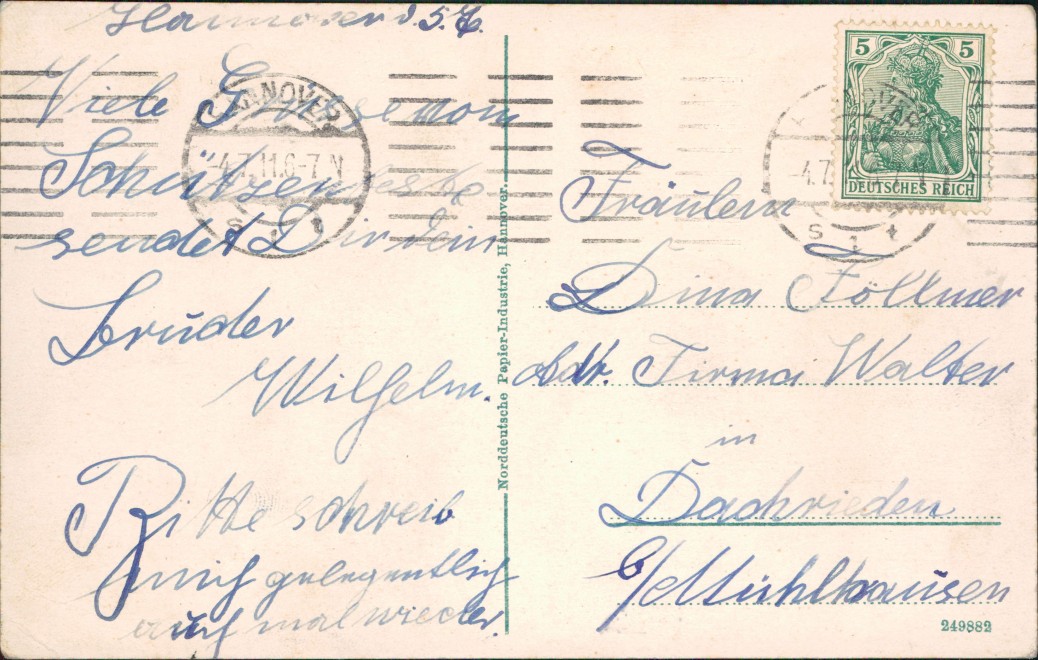 Hannover d. 5.7.
Viele Grüße vom
Schützenfeste
sendet Dir dein
Bruder
Wilhelm.
Bitte schreib
mich gelegentlich
auch mal wieder.
HANNOVER
4.7.11.6-7 N
1
Norddeutsche Papier-Industrie, Hannover.
5 5
DEUTSCHES REICH
4.7
S 1 t
Fräulein
Dina Föllmer
Adr. Firma Walter
in
Dachrieden
b/Mühlhausen
249882